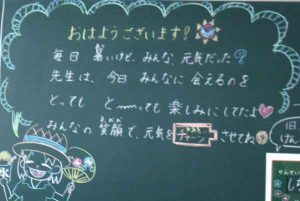 おはようございます!
毎日 暑いけど、みんな、元気だった?
先生は、今日 みんなに 会えるのを
とっても と〰〰っても 楽しみにしてたよ♡
みんなの 笑顔で、元気を チャージ させてね
えがお
氷